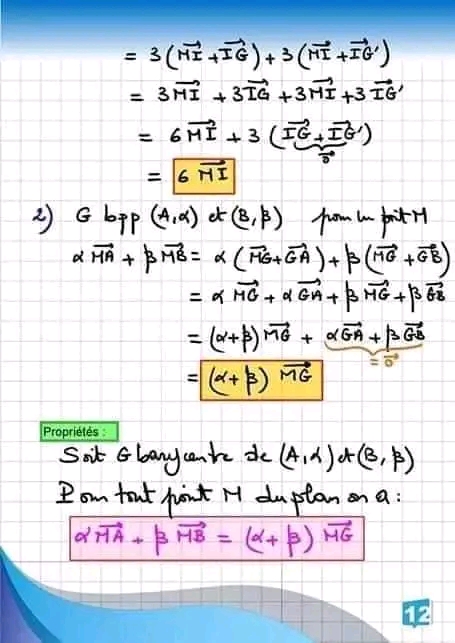 = 3(MI⃗ + IG⃗) + 3(MI⃗ + IG⃗')
= 3MI⃗ + 3IG⃗ + 3MI⃗ + 3IG⃗'
= 6MI⃗ + 3(IG⃗ + IG⃗')
0⃗
= 6 MI⃗
2) G bpp (A,α) et (B,β) pour un point M
αMA⃗ + βMB⃗ = α(MG⃗+GA⃗) + β(MG⃗ + GB⃗)
= αMG⃗ + αGA⃗ + βMG⃗ + βGB⃗
= (α+β)MG⃗ + αGA⃗ + βGB⃗
= 0⃗
= (α+β) MG⃗
Propriétés :
Soit G barycentre de (A,α) et (B,β)
Pour tout point M du plan on a :
αMA⃗ + βMB⃗ = (α+β) MG⃗
12